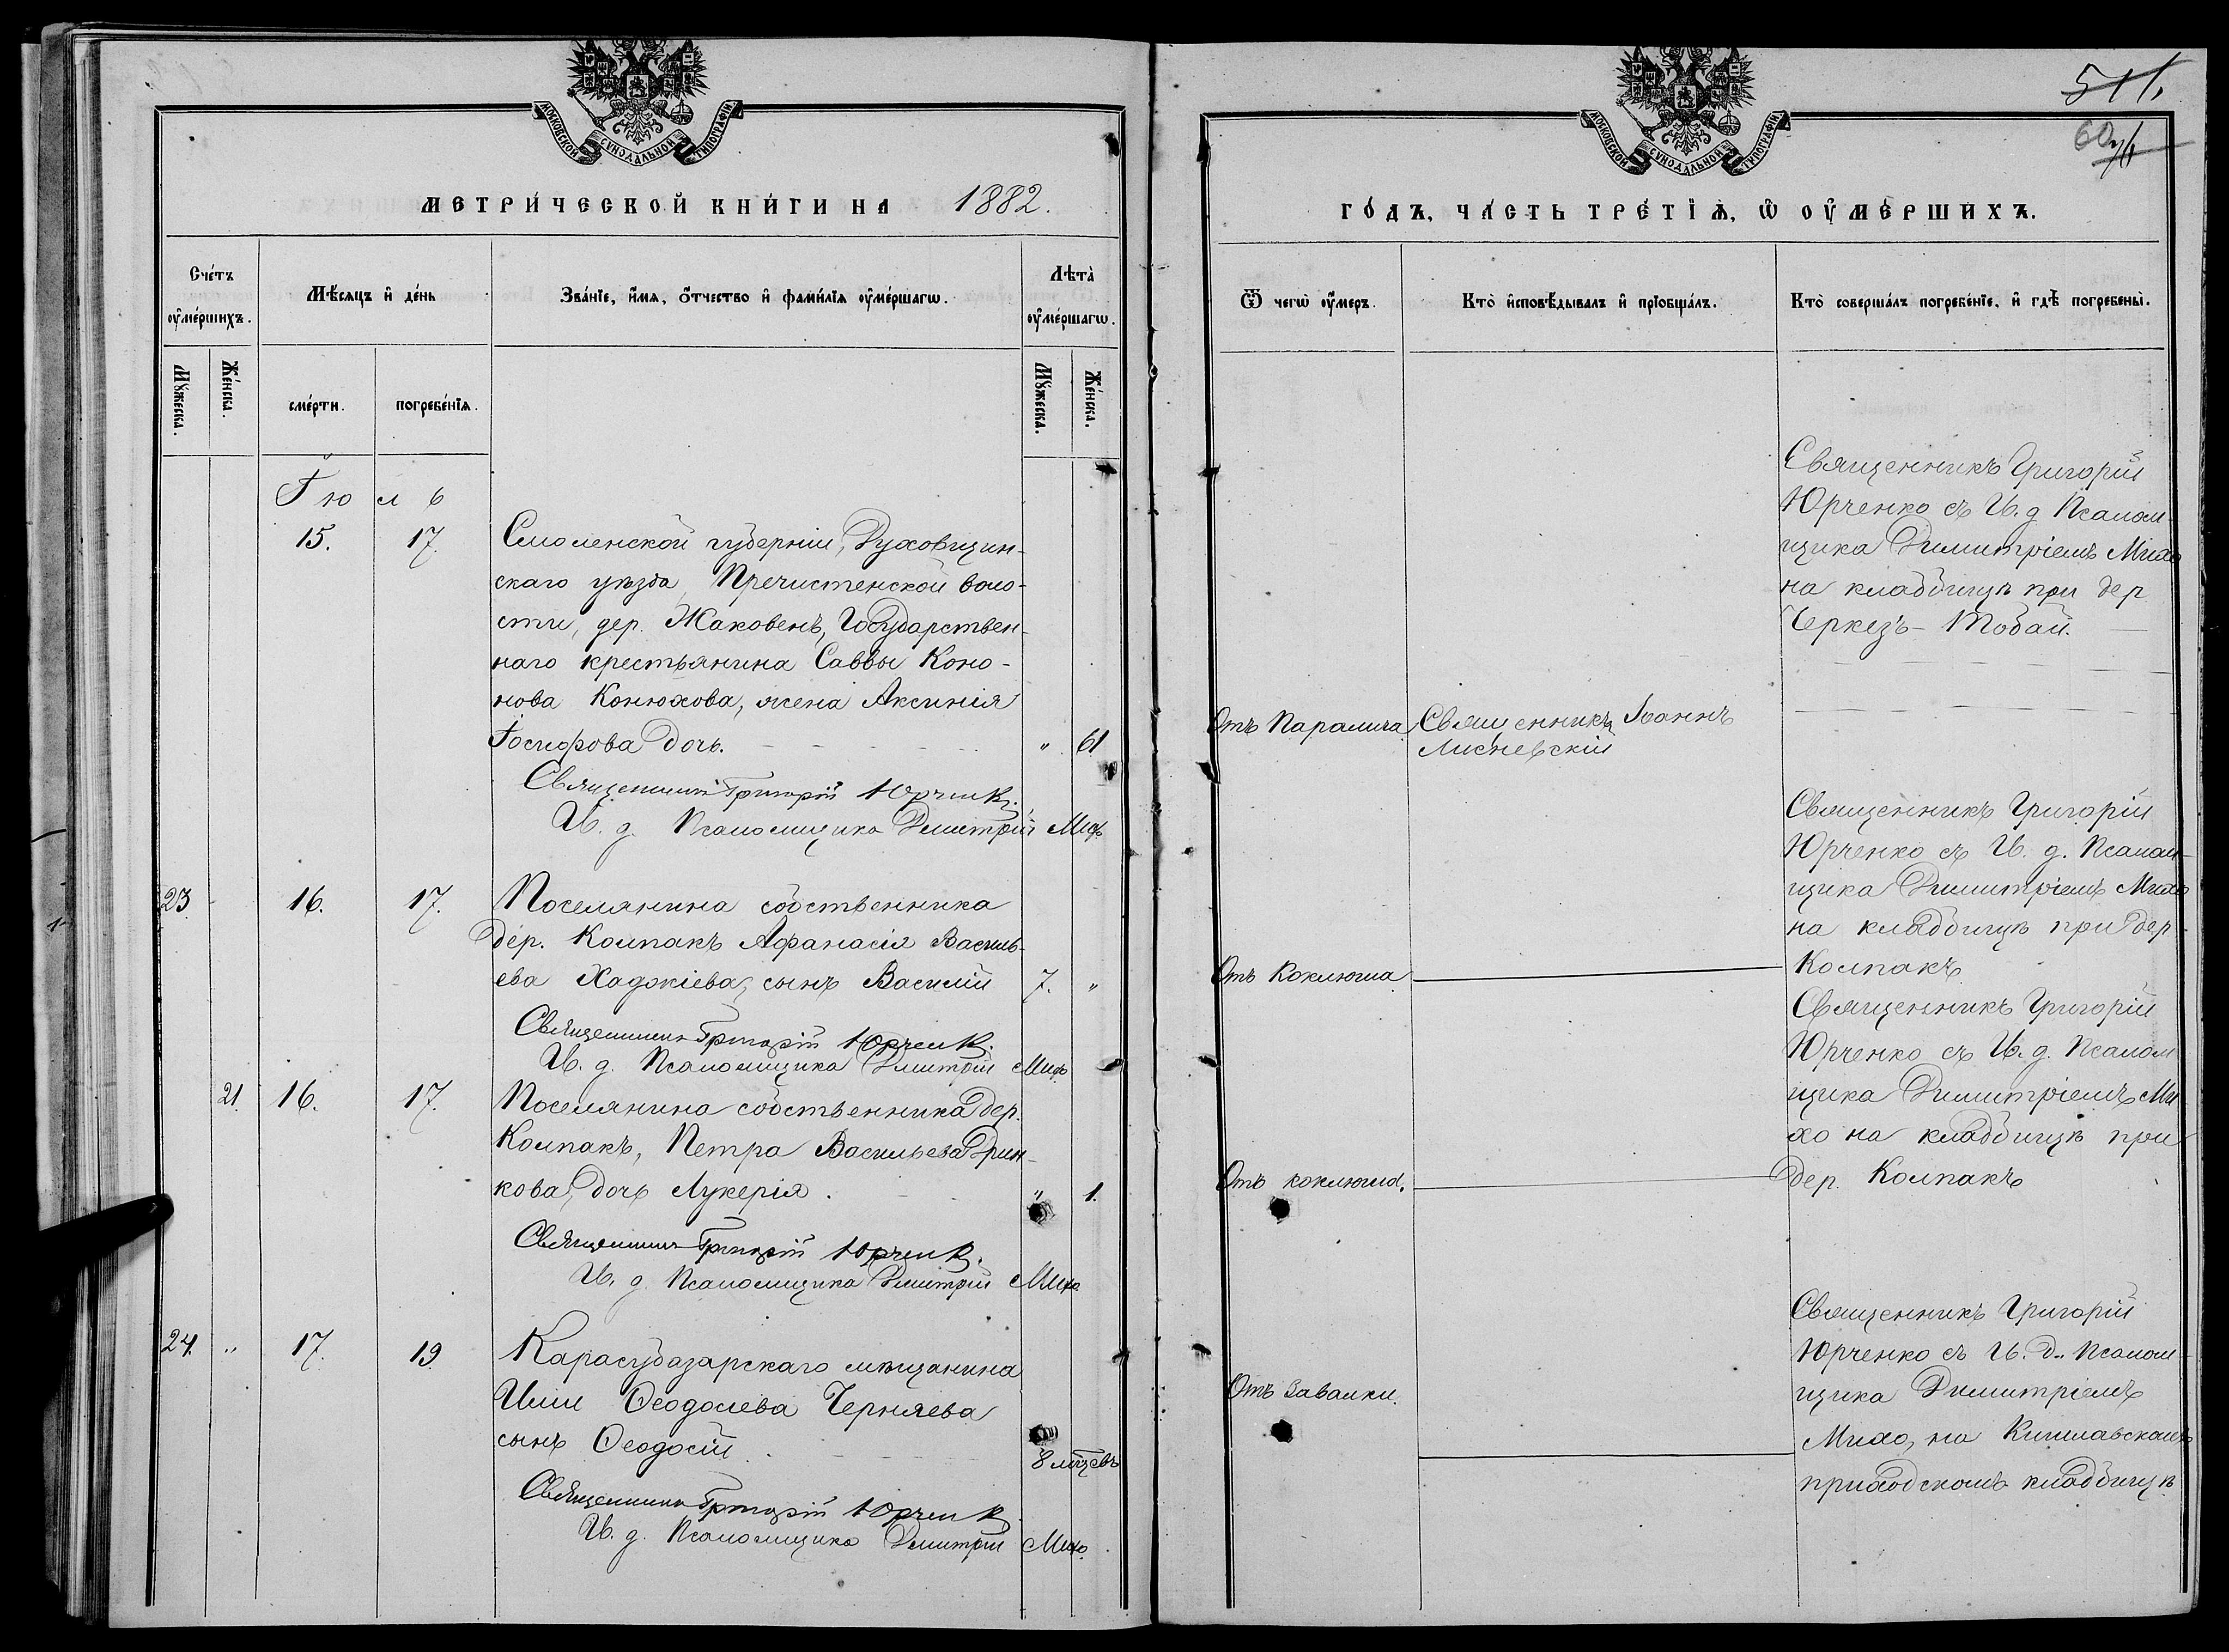 МОСКОВСКОЙ СѴНОДАЛЬНОЙ ТИПОГРАФІИ
МЕТРИ́ЧЕСКОЙ КНИ́ГИ НА 1882.
Сче́тъ ᲂу҆ме́ршихъ.
Мѣ́сяцъ и҆ де́нь
Зва́нїе, и҆́мѧ, ѻ҆́тчество и҆ фами́лїѧ ᲂу҆ме́ршагѡ.
Лѣта̀ ᲂу҆ме́ршагѡ.
Мꙋ́жеска.
Же́нска.
сме́рти.
погребе́нїѧ.
Мꙋ́жеска.
Же́нска.
Іюль
15. 17. Смоленской губерніи, Духовщин-
скаго уѣзда, Пречистенской воло-
сти, дер. Жаковенъ, Государствен-
наго крестьянина Саввы Коно-
нова Конюхова, жена Аксинія
Іосифова дочь. " 61
Священникъ Григорій Юрченко.
И. д. Псаломщика Дмитрій Михо
23 16. 17. Поселянина собственника
дер. Колпакъ Афанасія Василь-
ева Хаджіева, сынъ Василій 7. "
Священникъ Григорій Юрченко.
И. д. Псаломщика Дмитрій Михо
21. 16. 17. Поселянина собственника дер.
Колпакъ, Петра Васильева Дрин-
кова, дочь Лукерія. " 1.
Священникъ Григорій Юрченко.
И. д. Псаломщика Дмитрій Михо
24. " 17. 19. Карасубазарскаго мѣщанина
Ильи Ѳеодосіева Черняева
сынъ Ѳеодосій 8 мѣсцевъ
Священникъ Григорій Юрченко
И. д. Псаломщика Дмитрій Михо.
511.
60.
МОСКОВСКОЙ СѴНОДАЛЬНОЙ ТИПОГРАФІИ
ГО́ДЪ, ЧА́СТЬ ТРЕ́ТЇѦ, Ѡ҆ ОУ҆МЕ́РШИХЪ.
Ѿ чегѡ̀ ᲂу҆́меръ.
Кто̀ и҆сповѣ́дывалъ и҆ прїѡбща́лъ.
Кто̀ соверша́лъ погребе́нїе, и҆ гдѣ̀ погребены̀.
Священникъ Григорій
Юрченко съ И. д Псалом-
щика Димитріемъ Михо
на кладбищѣ при дер
Черкезъ-Тобай.
Отъ Паралича Священникъ Іоаннъ
Лисневскій
Священникъ Григорій
Юрченко съ И. д. Псалом-
щика Димитріемъ Михо
на кладбищѣ при дер
Отъ Коклюша Колпакъ
Священникъ Григорій
Юрченко съ И. д. Псалом
щика Димитріемъ Ми
хо на кладбищѣ при
Отъ коклюша. дер. Колпакъ
Священникъ Григорій
Юрченко съ И. д. Псалом-
Отъ Завалки. щика Димитріемъ
Михо, на Кишлавскомъ
приходскомъ кладбищѣ